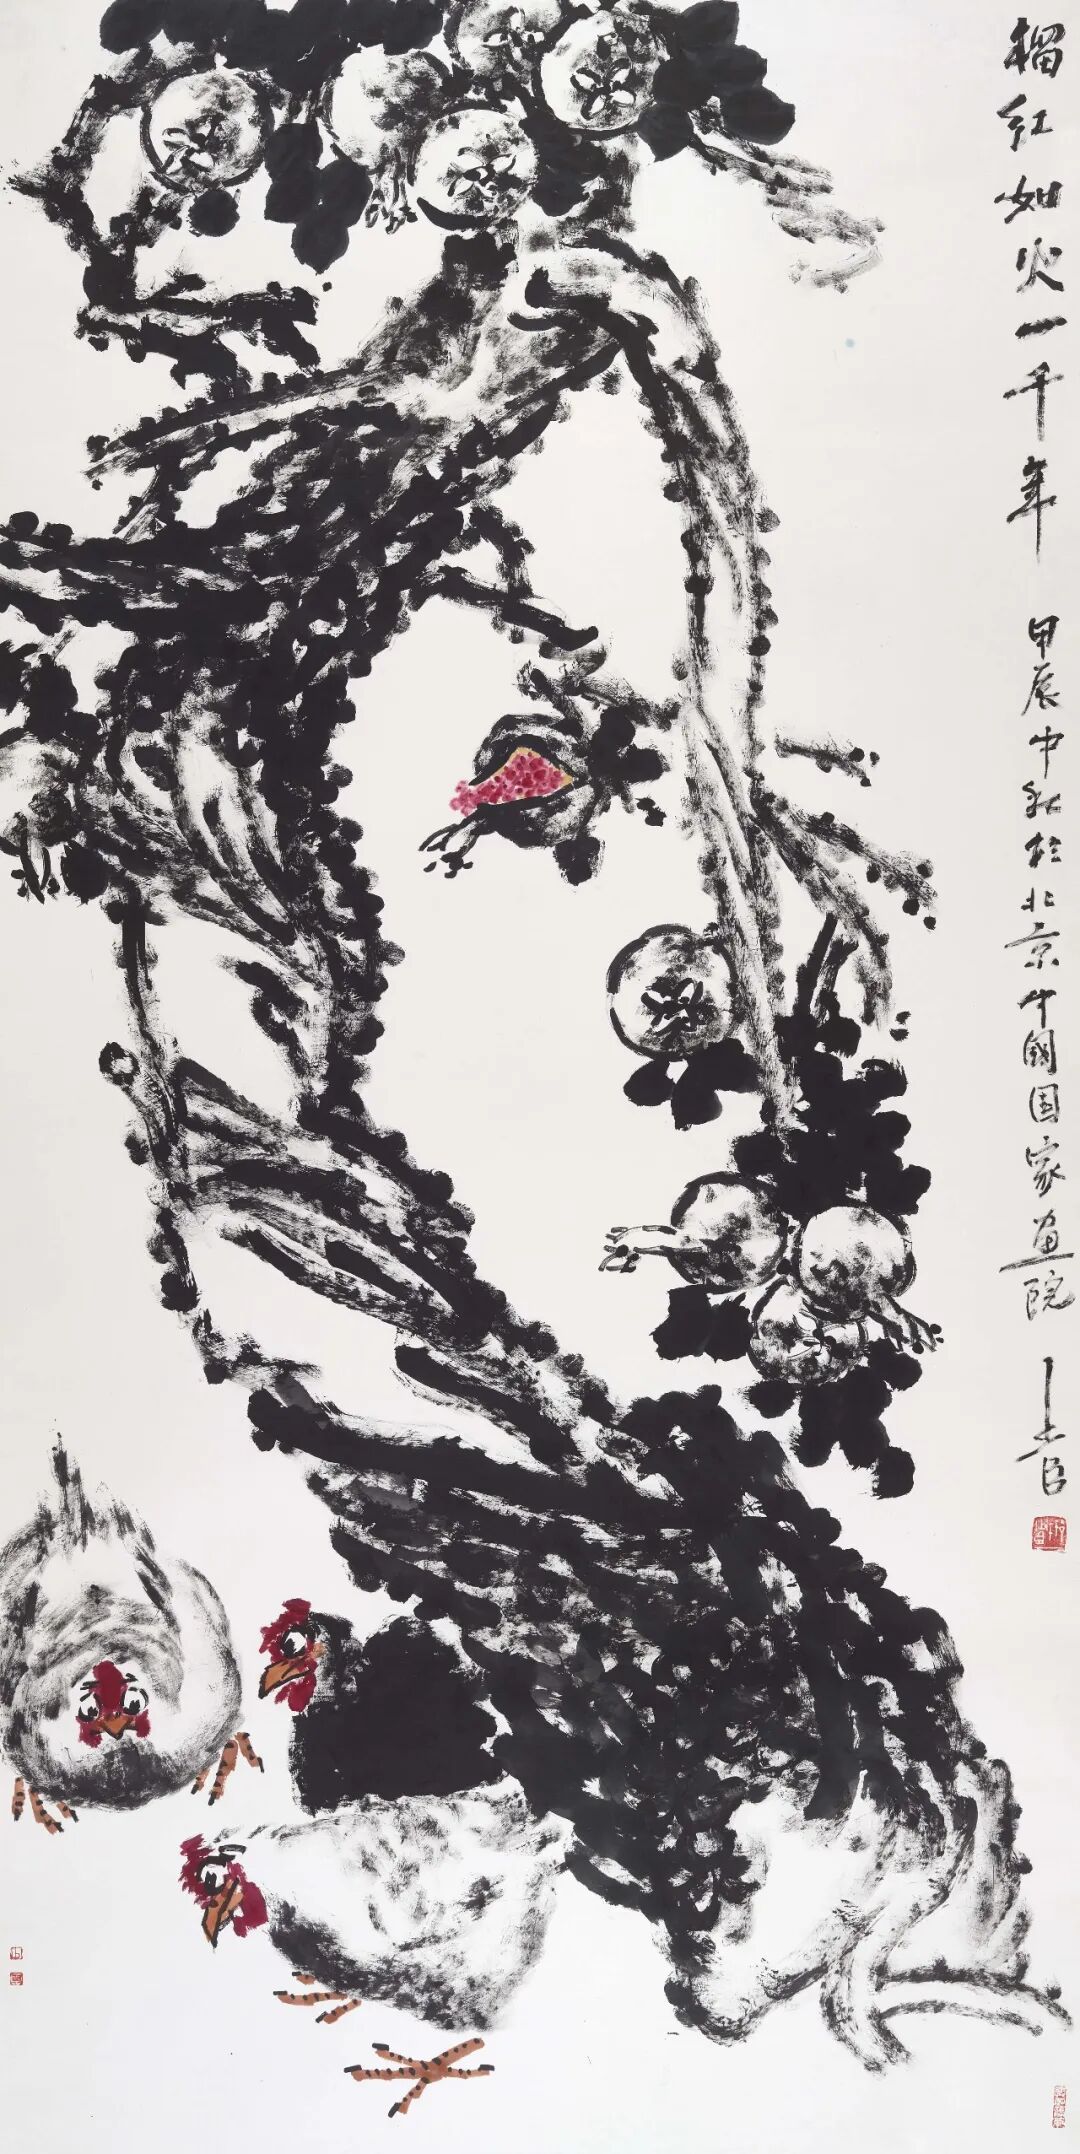 榴红如火一千年 甲辰中秋於北京中國国家画院